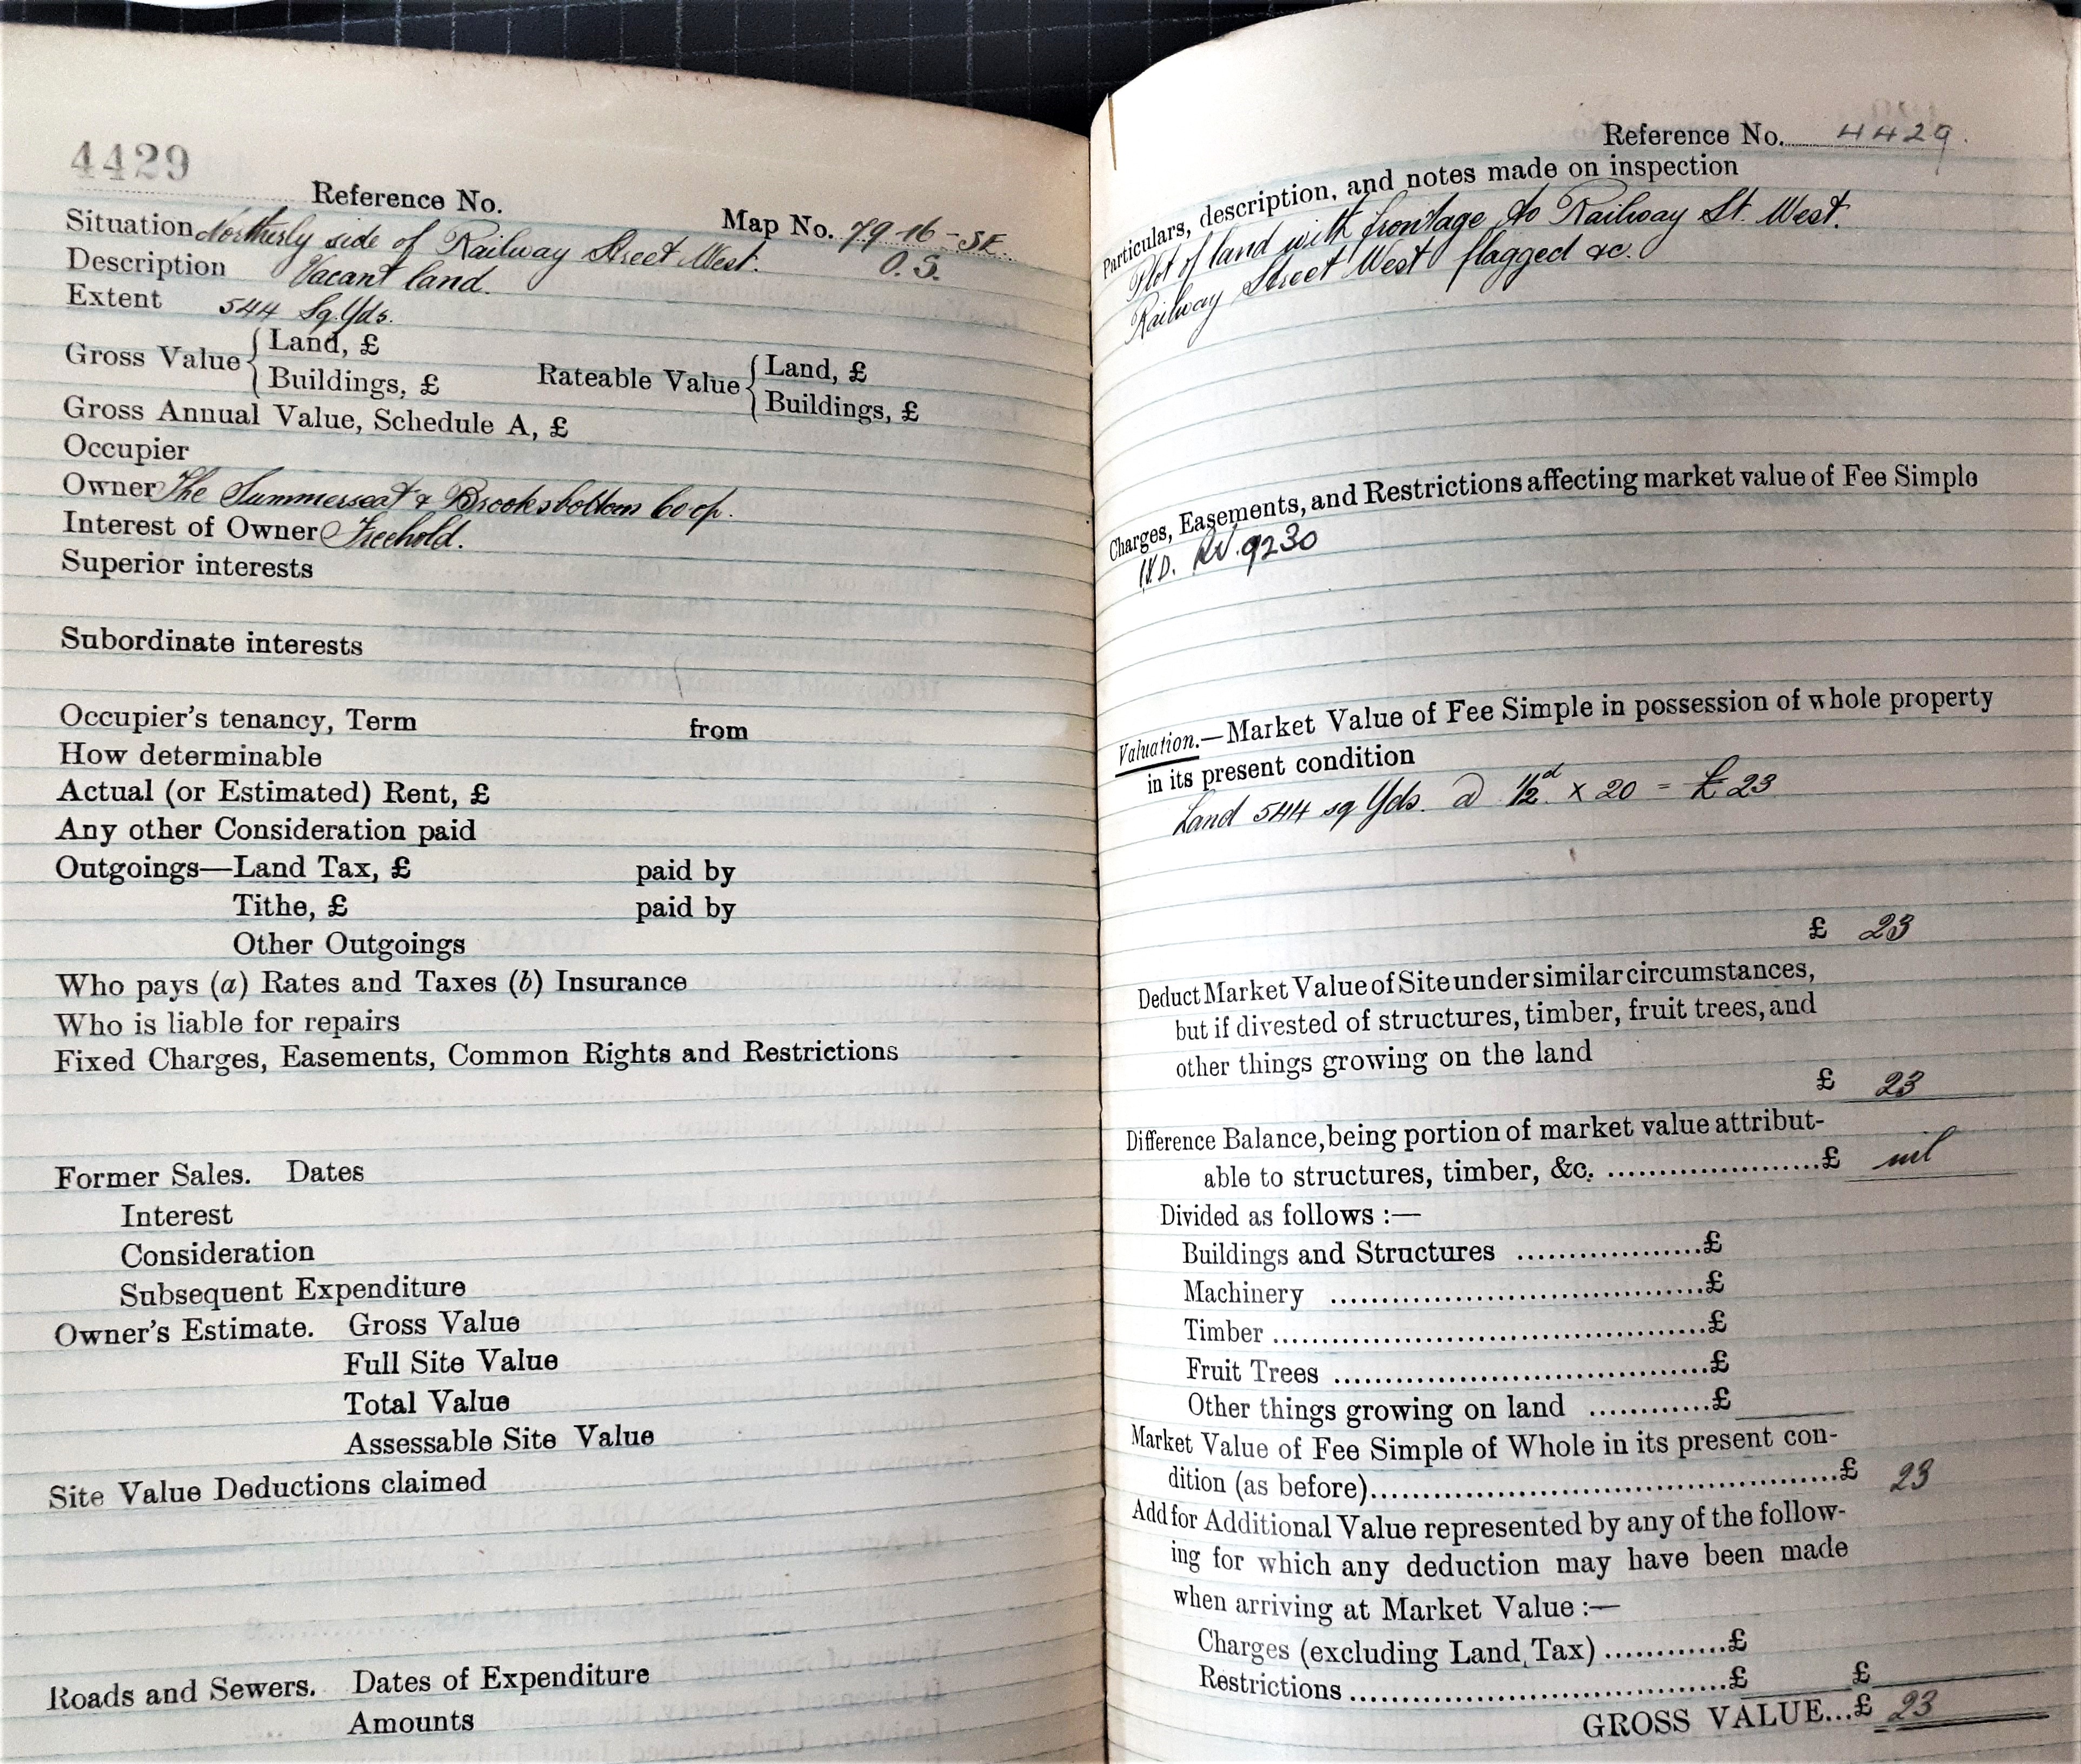 4429
Reference No.
Map No. 79-16-SE
Situation Northerly side of Railway Street West. O.S.
Description Vacant land.
Extent 544 Sq. Yds.
Gross Value { Land, £
Buildings, £
Rateable Value { Land, £
Buildings, £
Gross Annual Value, Schedule A, £
Occupier
Owner The Summerseat & Brooksbottom Coop.
Interest of Owner Freehold.
Superior interests
Subordinate interests
Occupier's tenancy, Term from
How determinable
Actual (or Estimated) Rent, £
Any other Consideration paid
Outgoings—Land Tax, £ paid by
Tithe, £ paid by
Other Outgoings
Who pays (a) Rates and Taxes (b) Insurance
Who is liable for repairs
Fixed Charges, Easements, Common Rights and Restrictions
Former Sales. Dates
Interest
Consideration
Subsequent Expenditure
Owner's Estimate. Gross Value
Full Site Value
Total Value
Assessable Site Value
Site Value Deductions claimed
Roads and Sewers. Dates of Expenditure
Amounts
Reference No. 4429.
Particulars, description, and notes made on inspection
Plot of land with frontage to Railway St. West.
Railway Street West flagged &c.
Charges, Easements, and Restrictions affecting market value of Fee Simple
9230
Valuation.—Market Value of Fee Simple in possession of whole property
in its present condition
Land 544 sq Yds. @ ½d × 20 = £23
£ 23
Deduct Market Value of Site under similar circumstances,
but if divested of structures, timber, fruit trees, and
other things growing on the land
£ 23
Difference Balance, being portion of market value attribut-
able to structures, timber, &c. ....................£ nil
Divided as follows :—
Buildings and Structures ..................£
Machinery ..................£
Timber ..................£
Fruit Trees ..................£
Other things growing on land ............£
Market Value of Fee Simple of Whole in its present con-
dition (as before)..................£ 23
Add for Additional Value represented by any of the follow-
ing for which any deduction may have been made
when arriving at Market Value :—
Charges (excluding Land Tax) ............£
Restrictions ..................£ £
GROSS VALUE...£ 23